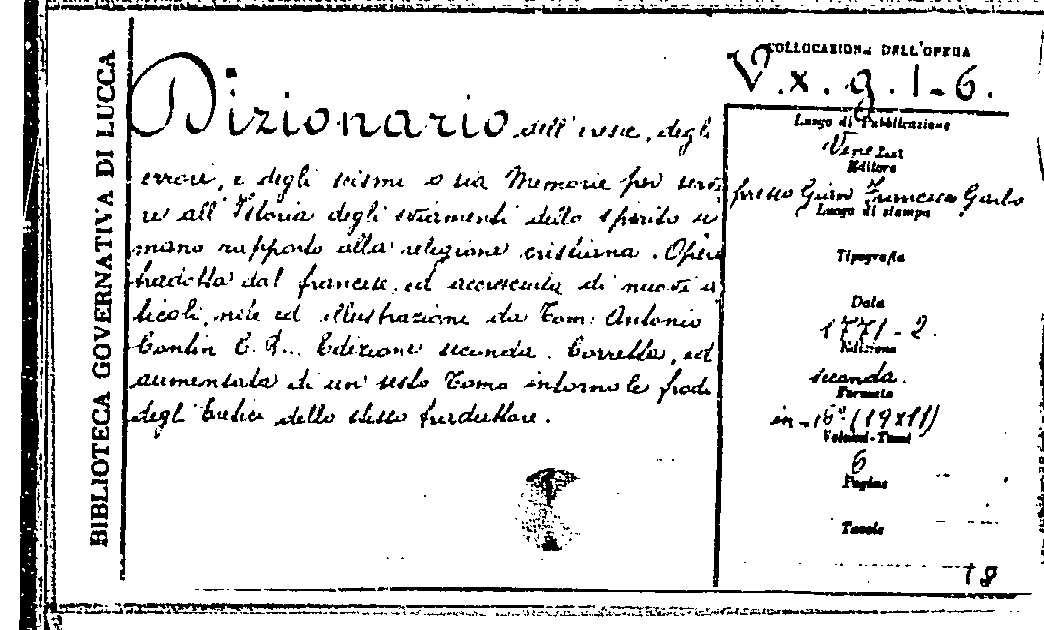 BIBLIOTECA GOVERNATIVA DI LUCCA
Dizionario dell'eresie, degli
errori, e degli scismi o sia Memorie per servi
re all'Istoria degli sviamenti dello spirito u
mano rapporto alla religione cristiana. Opera
tradotta dal francese, ed accresciuta di nuovi ar
ticoli, note ed illustrazione da Tom: Antonio
Contin C. R... Edizione seconda. Corretta, ed
aumentata di un sesto Tomo intorno le frodi
degli Eretici dello stesso traduttore.
COLLOCAZIONE DELL'OPERA
V. x. g. 1-6.
Luogo di Pubblicazione
Venezia
Editore
presso Gian Francesco Garbo
Luogo di stampa
Tipografia
Data
1771-2.
Edizione
seconda.
Formato
in-16° (19x11)
Volumi-Tomi
6
Pagine
Tavole
18